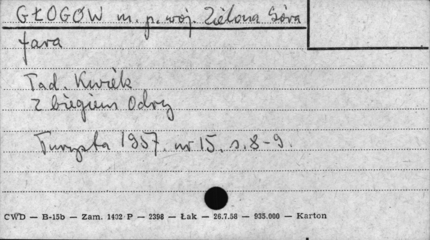 GŁOGÓW m. p. woj. Zielona Góra
fara
Tad. Kwiek
Z biegiem Odry
Turysta 1957. nr 15. s. 8-9.
CWD — B-15b — Zam. 1402 P — 2398 — Łak — 26.7.58 — 935.000 — Karton